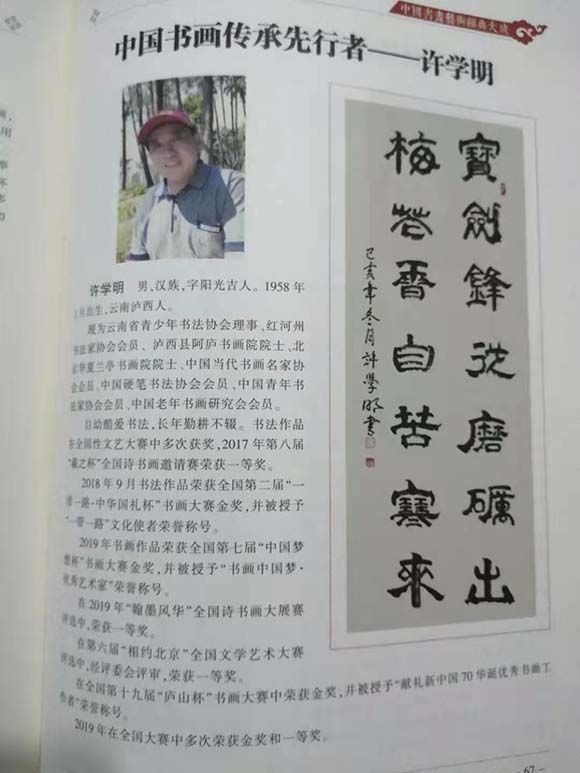 中國書畫藝術典大成
中国书画传承先行者——许学明
寶劍鋒從磨礪出
梅花香自苦寒來
己亥年冬月許學明書
许学明 男,汉族,字阳光吉人。1958 年
月出生,云南泸西人。
现为云南省青少年书法协会理事、红河州
书法家协会会员、泸西县阿庐书画院院士、北
京华夏兰亭书画院院士、中国当代书画名家协
会会员、中国硬笔书法协会会员、中国青年书
法家协会会员、中国老年书画研究会会员。
自幼酷爱书法,长年勤耕不辍。书法作品
在全国性文艺大赛中多次获奖,2017 年第八届
“羲之杯”全国诗书画邀请赛荣获一等奖。
2018 年 9 月书法作品荣获全国第二届“一
带一路·中华国礼杯”书画大赛金奖,并被授予
“一带一路”文化使者荣誉称号。
2019 年书画作品荣获全国第七届“中国梦
想杯”书画大赛金奖,并被授予“书画中国梦·
优秀艺术家”荣誉称号。
在 2019 年“翰墨风华”全国诗书画大展赛
评选中,荣获一等奖。
在第六届“相约北京”全国文学艺术大赛
评选中,经评委会评审,荣获一等奖。
在全国第十九届“庐山杯”书画大赛中荣获金奖,并被授予“献礼新中国 70 华诞优秀书画工
作者”荣誉称号。
2019 年在全国大赛中多次荣获金奖和一等奖。
67